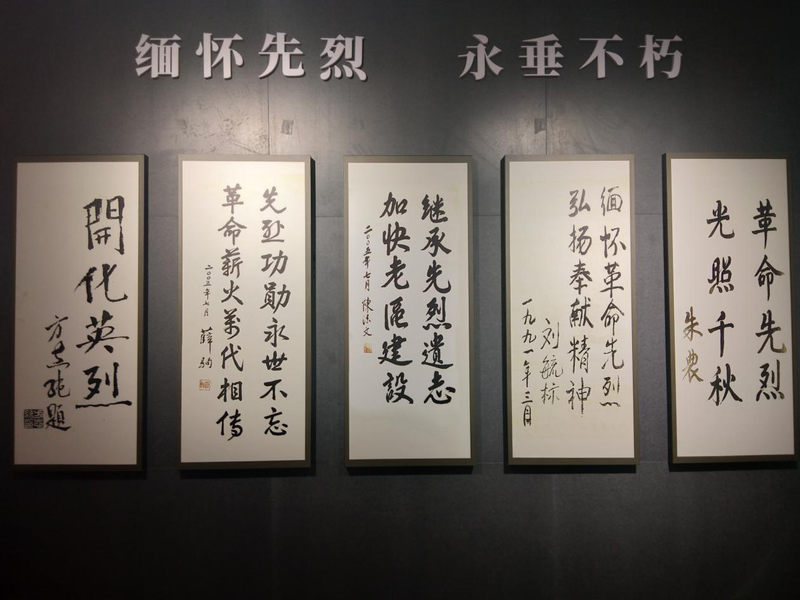 缅怀先烈 永垂不朽
開化英烈
先烈功勋永世不忘
革命薪火萬代相傳
二〇〇五年七月
继承先烈遺志
加快老區建設
二〇〇五年七月
缅怀革命先烈
弘扬奉献精神
刘毓标
一九九一年三月
革命先烈
光照千秋
朱農